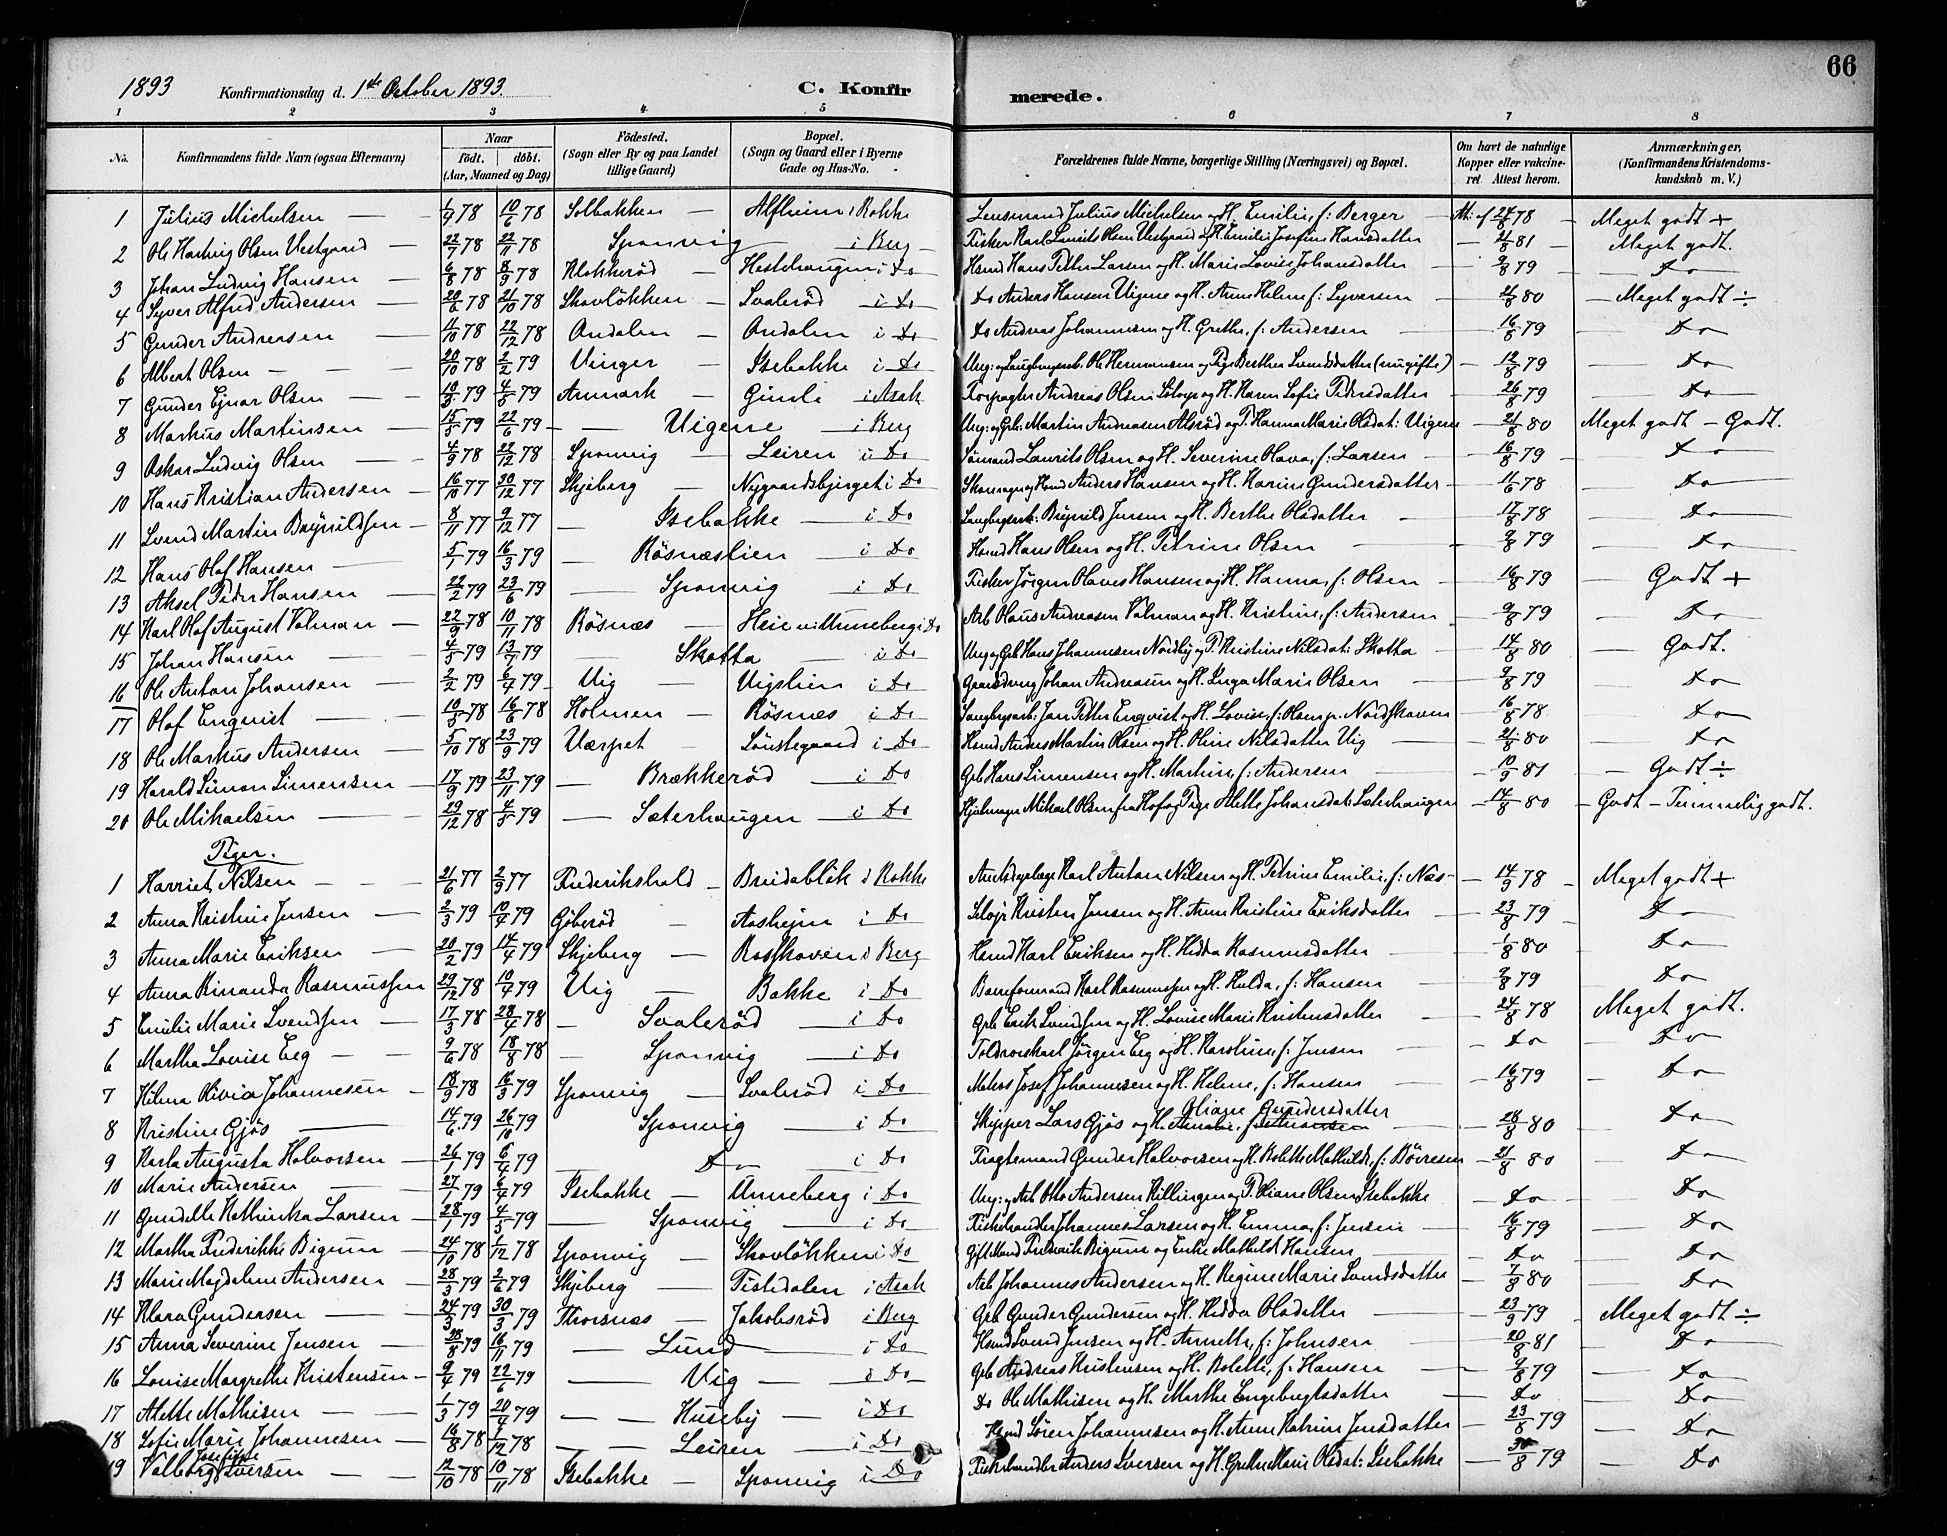 66
1893 Konfirmationsdag d. 1ste October 1893. C. Konfirmerede.
1 2 3 4 5 6 7 8
No. Konfirmandens fulde Navn (ogsaa Efternavn) Naar født. døbt. (Aar, Maaned og Dag) Fødested. (Sogn eller By og paa Landet tillige Gaard) Bopæl. (Sogn og Gaard eller i Byerne Gade og Hus-No. Forældrenes fulde Navne, borgerlige Stilling (Næringsvei) og Bopæl. Om havt de naturlige Kopper eller vaccineret. Attest herom. Anmærkninger, (Konfirmandens Kristendomskundskab m. V.)
1 Julius Michelsen 1/9 78 10/6 78 Solbakken Alfheim i Rokke Lensmand Julius Michelsen og H. Emilie, f: Berger 24/8 78 Meget godt +
2 Ole Hartvig Olsen Vestgaard 22/7 78 22/11 78 Sponvig i Berg Fisker Karl Laurits Olsen Vestgaard og H. Emilie Josefine Hansdatter 21/8 81 Meget godt.
3 Johan Ludvig Hansen 6/8 78 8/9 78 Klokkerød Hestehaugen i Do Hsmd Hans Petter Larsen og H. Marie Lovise Johansdatter 9/8 79 Do
4 Syver Alfred Andersen 20/6 78 21/10 78 Skovløkken Svalerød i Do Do Anders Hansen Vigene og H. Anne Helene f: Syversen 21/8 80 Meget godt ÷
5 Gunder Andreasen 11/10 78 22/12 78 Ondalen Ondalen i Do Do Andreas Johannesen og H. Grethe, f: Andersen 16/8 79 Do
6 Albert Olsen 20/10 78 2/2 79 Vinger Isebakke i Do Ung: og Ole Hermansen og Pige Berthea Lundsdatter (nu gifte) 12/8 79 Do
7 Gunder Ejnar Olsen 10/3 79 4/5 79 Aremark Gimle i Asak Forpagter Andreas Olsen og H. Karen Sofie Pedersdatter 26/8 79 Do
8 Markus Martinsen 15/5 79 22/6 79 Vigene i Berg Ung: og Grb: Martin Andreasen Alsrød og P. Hanna Marie Olsdat: Vigene 21/8 80 Meget godt – Godt.
9 Oskar Ludvig Olsen 4/9 78 22/12 78 Sponvig Leiren i Do Sømand Laurits Olsen og H. Severine Olava, f: Larsen 16/8 79 Do
10 Hans Kristian Andersen 16/10 77 20/12 77 Skjeberg Nygaardsbjerget i Do Skomager og Hsmd Anders Hansen og H. Karine Gundersdatter 11/6 78 Do
11 Svend Martin Brynildsen 8/11 77 9/12 77 Isebakke i Do Brynild Jensen og H. Berthe Olsdatter 17/8 78 Do
12 Hans Olaf Hansen 5/1 79 16/3 79 Røsneslien i Do Hsmd Hans Olsen og H. Petrine Olsen 9/8 79 Do
13 Aksel Peder Hansen 22/2 79 23/6 79 Sponvig i Do Fisker Jørgen Olaves Hansen og H. Hanna, f: Olsen 16/8 79 Godt +
14 Karl Olaf August Valman 22/9 78 10/11 78 Røsnæs Heie u: Unneberg i Do Arb Olaus Andreasen Valman og H. Kristine, f: Andersen 9/8 79 Do
15 Johan Hansen 4/5 79 13/7 79 Skotta i Do Ung og Grb Hans Johannesen Nordby og P. Kristine Nilsdat: Skotta 14/8 80 Godt.
16 Ole Anton Johansen 2/2 79 6/4 79 Vig Vigslien i Do Gaardbrug Johan Andreasen og H. Inga Marie Olsen 9/8 79 Do
17 Olaf Enqvist 10/5 78 16/6 78 Holmen Røsnæs i Do Jan Petter Enqvist og H. Lovise, f: Olsen p. Nordskoven 16/8 78 Do
18 Ole Markus Andersen 5/10 78 23/9 79 Værpet Lønstegaard i Do Hsmd Anders Martin Olsen og H. Oline Nilsdatter Vig 21/8 80 Do
19 Harald Simon Simensen 17/9 79 23/11 79 Brækkerød i Do Grb Hans Simensen og H. Martine, f: Andersen 10/9 81 Godt ÷
20 Ole Mikaelsen 29/12 78 4/5 79 Sæterhaugen i Do Hjulmager Mikael Olsen fra Hof og Pige Alette Johansdat: Sæterhaugen 14/8 80 Godt – Temmelig godt.
Piger.
1 Harriet Nilsen 21/6 77 2/9 77 Frederikshald Breidablik i Rokke Karl Anton Nilsen og H. Petrine Emilie, f: Næs 14/9 78 Meget godt +
2 Anna Kristine Jensen 2/3 79 10/4 79 Gøberød Aashejm i Do Selvejr Kristen Jensen og H. Anne Kristine Eriksdatter 23/8 79 Do
3 Anna Marie Eriksen 20/2 79 14/4 79 Skjeberg Rosskoven i Berg Hsmd Karl Eriksen og H. Hedda Rasmusdatter 1/8 80 Do
4 Anna Rinanda Rasmussen 29/12 78 10/4 79 Vig Bakke i Do Baneformand Karl Rasmussen og H. Hulda, f: Hansen 9/8 79 Do
5 Emilie Marie Svendsen 17/3 78 28/4 78 Svalerød i Do Grb Erik Svendsen og H. Lovise Marie Kristensdatter 24/8 78 Meget godt.
6 Martha Lovise Eeg 9/6 78 18/8 78 Sponvig i Do Toldroerskarl Jørgen Eeg og H. Karoline, f: Jensen Do Do
7 Helena Olivia Johannesen 18/9 78 16/3 79 Sponvig Svalerød i Do Matros Josef Johannesen og H. Helene, f: Hansen 16/8 79 Do
8 Kristine Gjøs 14/6 79 26/10 79 Sponvig i Do Skipper Lars Gjøs og H. Oliane Gundersdatter 28/8 80 Do
9 Karla Augusta Halvorsen 26/1 79 6/4 79 Do i Do Fragtemand Gunder Halvorsen og H. Bolette Mathilde, f: Børresen 21/8 80 Do
10 Marie Andersen 27/1 79 6/4 79 Isebakke Unneberg i Do Ung: og Arb Otto Andersen Killingen og P. Oliane Olsen Isebakke Do Do
11 Gundelle Kathinka Larsen 28/1 79 4/5 79 Sponvig i Do Fiskehandler Johannes Larsen og H. Emma, f: Jensen 16/8 79 Do
12 Martha Frederikke Bigum 24/10 78 1/12 78 Sponvig Skovløkken i Do Gift Mand Frederik Bigum og Enke Mathilde Hansen Do Do
13 Marie Magdalene Andersen 28/3 79 2/6 79 Skjeberg Tistedalen i Asak Arb Johannes Andersen og H. Regine Marie Lundsdatter 7/9 80 Do
14 Klara Gundersen 24/3 79 30/3 79 Thorsnæs Jakobsrød i Berg Grb Gunder Gundersen og H. Hedda Olsdatter 23/9 79 Meget godt ÷
15 Anna Severine Jensen 28/8 79 16/11 79 Lund i Do Hsmd Svend Jensen og H. Annette, f: Johnsen 20/8 81 Do
16 Lovise Margrethe Kristensen 9/4 79 22/6 79 Vig i Do Grb Andreas Kristensen og H. Bolette, f: Hansen 9/8 79 Do
17 Alette Mathisen 1/3 79 20/4 79 Huseby i Do Do Ole Mathisen og H. Marthe Engebregtsdatter Do Do
18 Sofie Marie Johannesen 16/8 78 1/12 78 Leiren i Do Hsmd Søren Johannesen og H. Anne Katrine Jensdatter 23/8 79 Do
19 Valborg Josefine Iversen 12/10 78 10/11 78 Isebakke Sponvig i Do Fiskehandler Anders Iversen og H. Grethe Marie Olsdat: Isebakke 30/8 79 Do